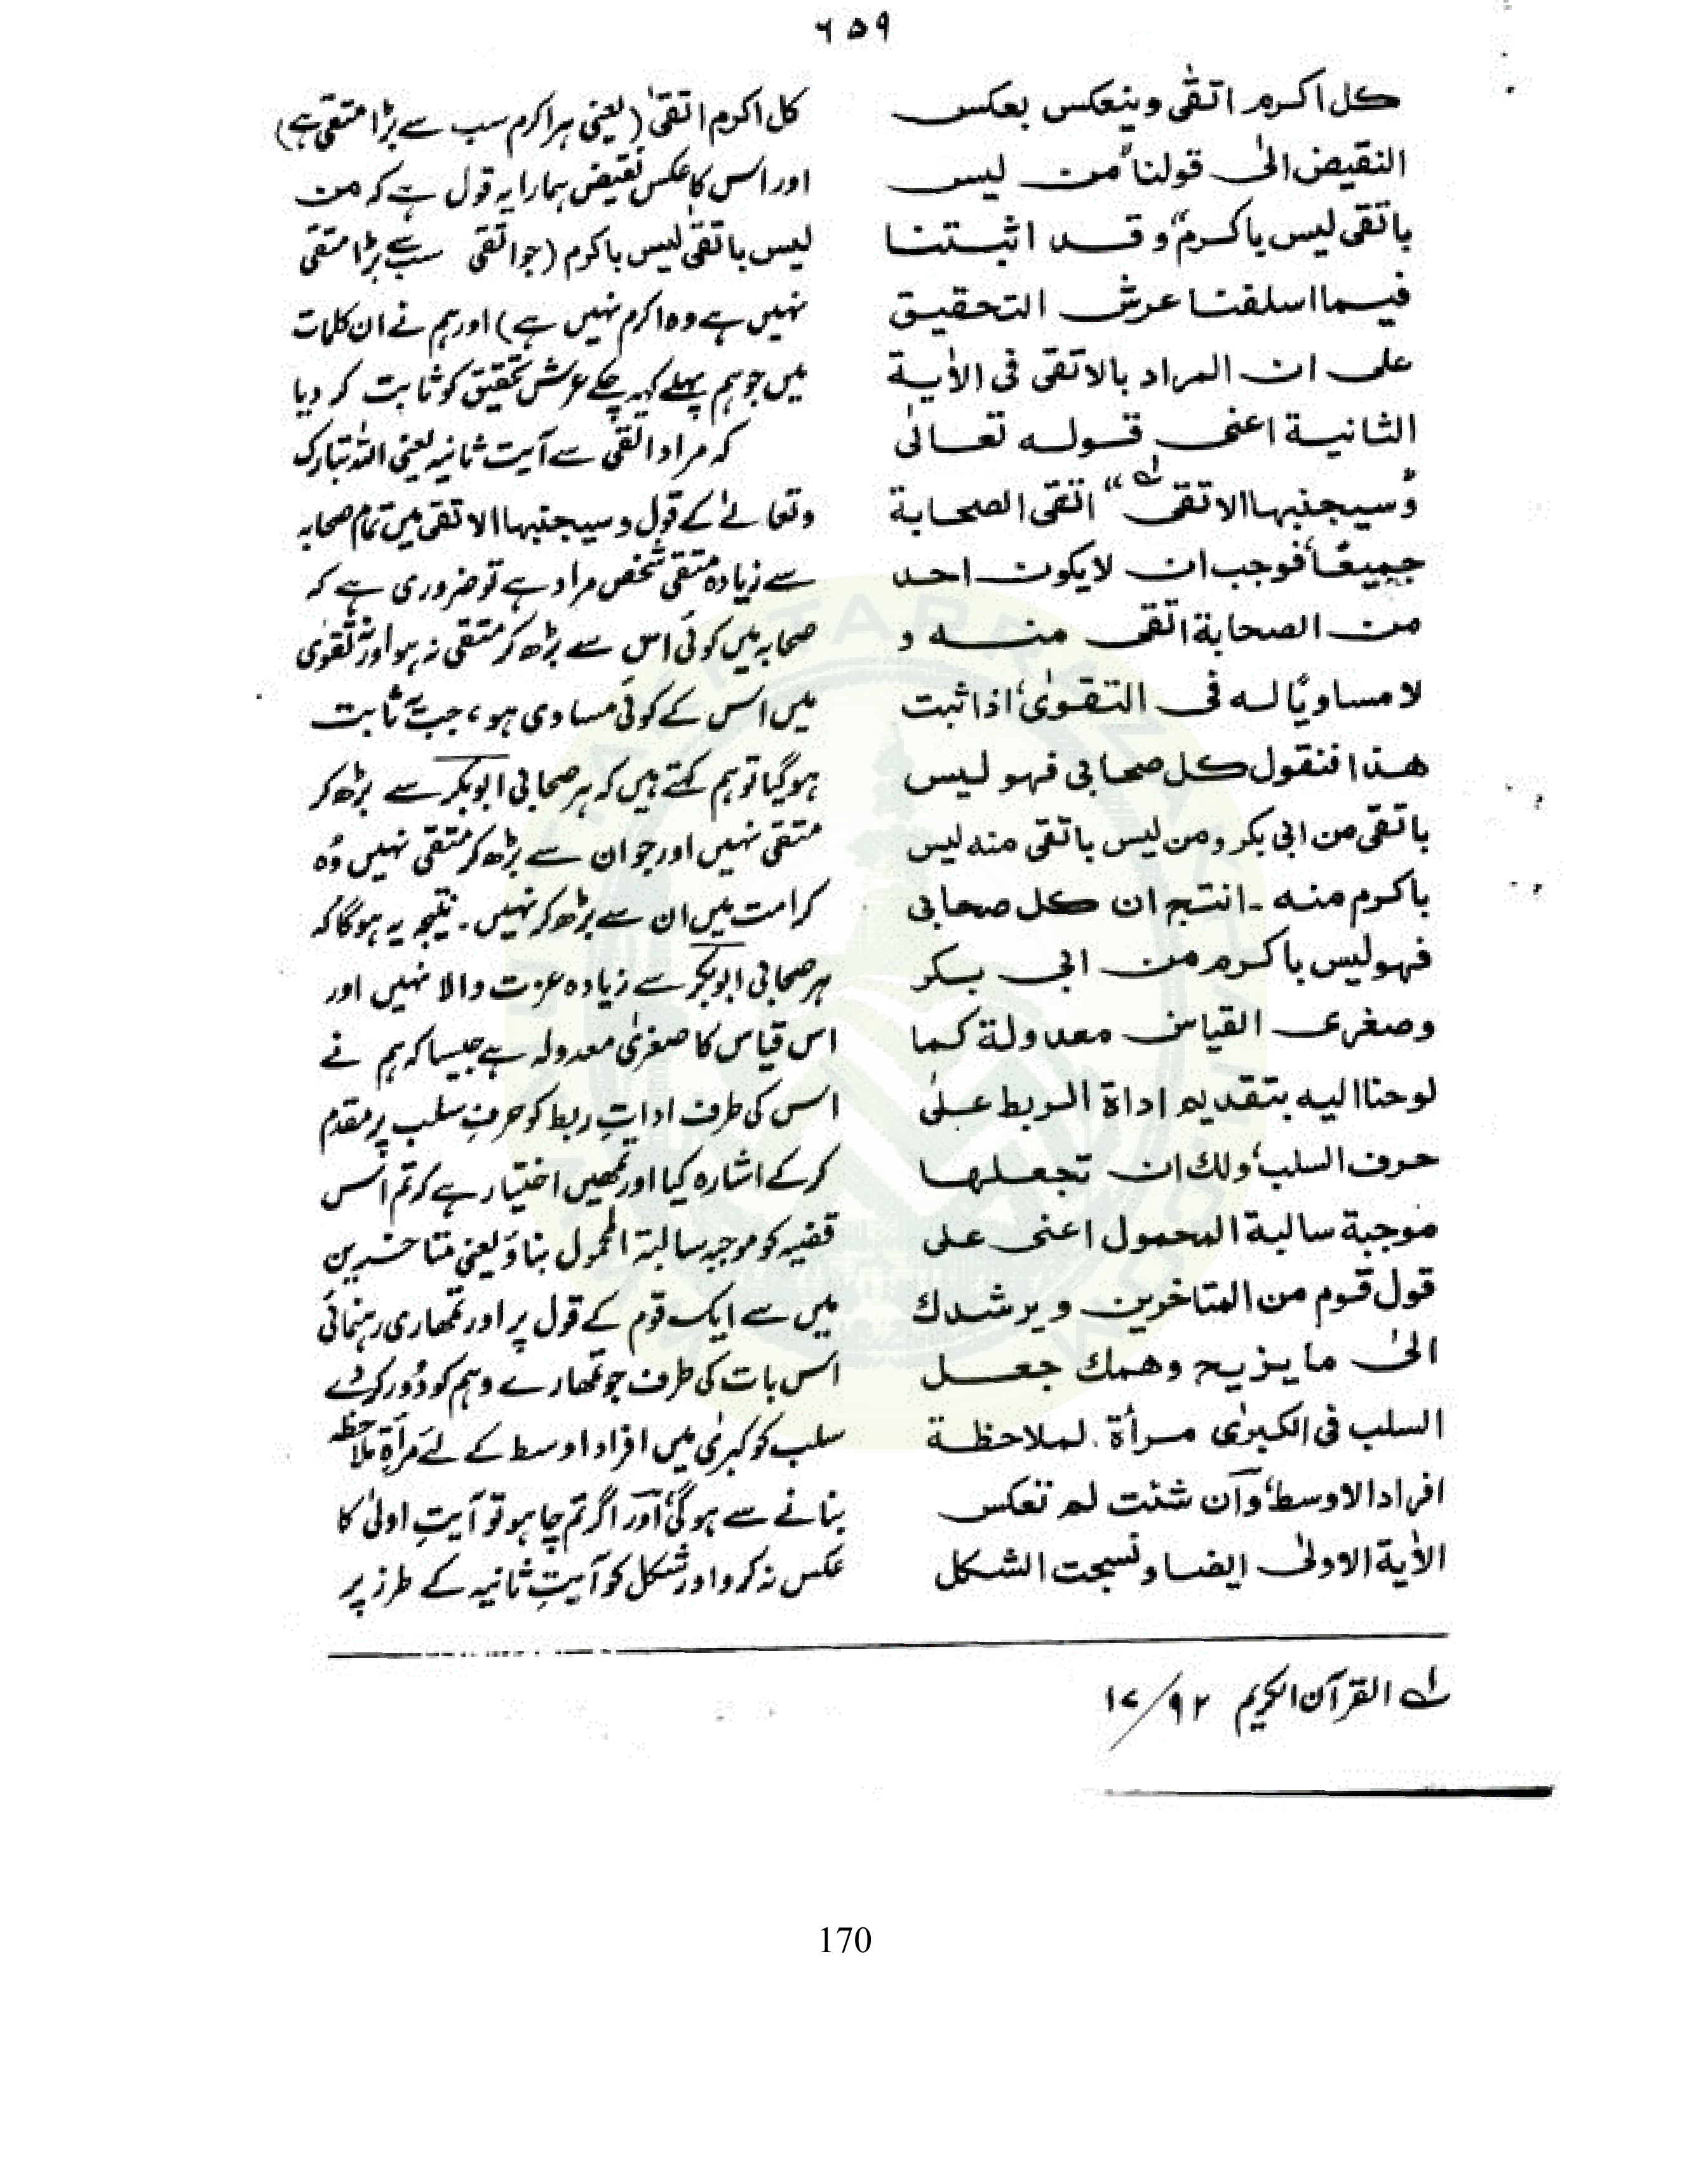 ٦٥٩
كل اكرم اتقٰى وينعكس بعكس
النقيض الىٰ قولنا "من ليس
باتقى ليس باكرم" وقد اثبتنا
فيما اسلفنا عرش التحقيق
على ان المراد بالاتقى فى الأٰية
الثانية اعنى قوله تعالىٰ
"وسيجنبها الاتقى" لہ اتقى الصحابة
جميعًا، فوجب ان لا يكون احد
من الصحابة اتقى منه و
لا مساويًا له فى التقوىٰ، اذا ثبت
هذا فنقول كل صحابى فهو ليس
باتقى من ابى بكر ومن ليس باتقى منه ليس
باكرم منه ـ انتج ان كل صحابى
فهو ليس باكرم من ابى بكر
وصغرى القياس معدولة كما
لوحنا اليه بتقديم اداة الربط علىٰ
حرف السلب، ولك ان تجعلها
موجبة سالبة المحمول اعنى على
قول قوم من المتاخرين ويرشدك
الىٰ ما يزيح وهمك جعل
السلب فى الكبرٰى مرأة لملاحظة
افراد الاوسط، وآن شئت لم تعكس
الأٰية الاولىٰ ايضا ونسجت الشكل
کل اکرم اتقیٰ (یعنی ہر اکرم سب سے بڑا متقی ہے)
اور اس کا عکس نقیض ہمارا یہ قول ہے کہ من
لیس باتقیٰ لیس باکرم (جو اتقی سب سے بڑا متقی
نہیں ہے وہ اکرم نہیں ہے) اور ہم نے ان کلمات
میں جو ہم پہلے کہہ چکے عرشِ تحقیق کو ثابت کر دیا
کہ مراد اتقی سے آیت ثانیہ یعنی اللہ تبارک
وتعالےٰ کے قول وسیجنبہا الاتقی میں تمام صحابہ
سے زیادہ متقی شخص مراد ہے تو ضروری ہے کہ
صحابہ میں کوئی اس سے بڑھ کر متقی نہ ہو اور نہ تقوٰی
میں اس کے کوئی مساوی ہو، جب یہ ثابت
ہوگیا تو ہم کہتے ہیں کہ ہر صحابی ابوبکر سے بڑھ کر
متقی نہیں اور جو ان سے بڑھ کر متقی نہیں وُہ
کرامت میں ان سے بڑھ کر نہیں۔ نتیجہ یہ ہوگا کہ
ہر صحابی ابوبکر سے زیادہ عزت والا نہیں اور
اس قیاس کا صغریٰ معدولہ ہے جیسا کہ ہم نے
اس کی طرف اداتِ ربط کو حرفِ سلب پر مقدم
کرکے اشارہ کیا اور تمھیں اختیار ہے کہ تم اس
قضیہ کو موجبہ سالبۃ المحمول بناؤ یعنی متاخرین
میں سے ایک قوم کے قول پر اور تمھاری رہنمائی
اس بات کی طرف جو تمھارے وہم کو دُور کرے
سلب کو کبریٰ میں افرادِ اوسط کے لئے مرأۃ ملاحظہ
بنانے سے ہوگی، اور اگر تم چاہو تو آیتِ اولیٰ کا
عکس نہ کرو اور شکل کو آیتِ ثانیہ کے طرز پر
لہ القرآن الکریم ۹۲/۱۷
170